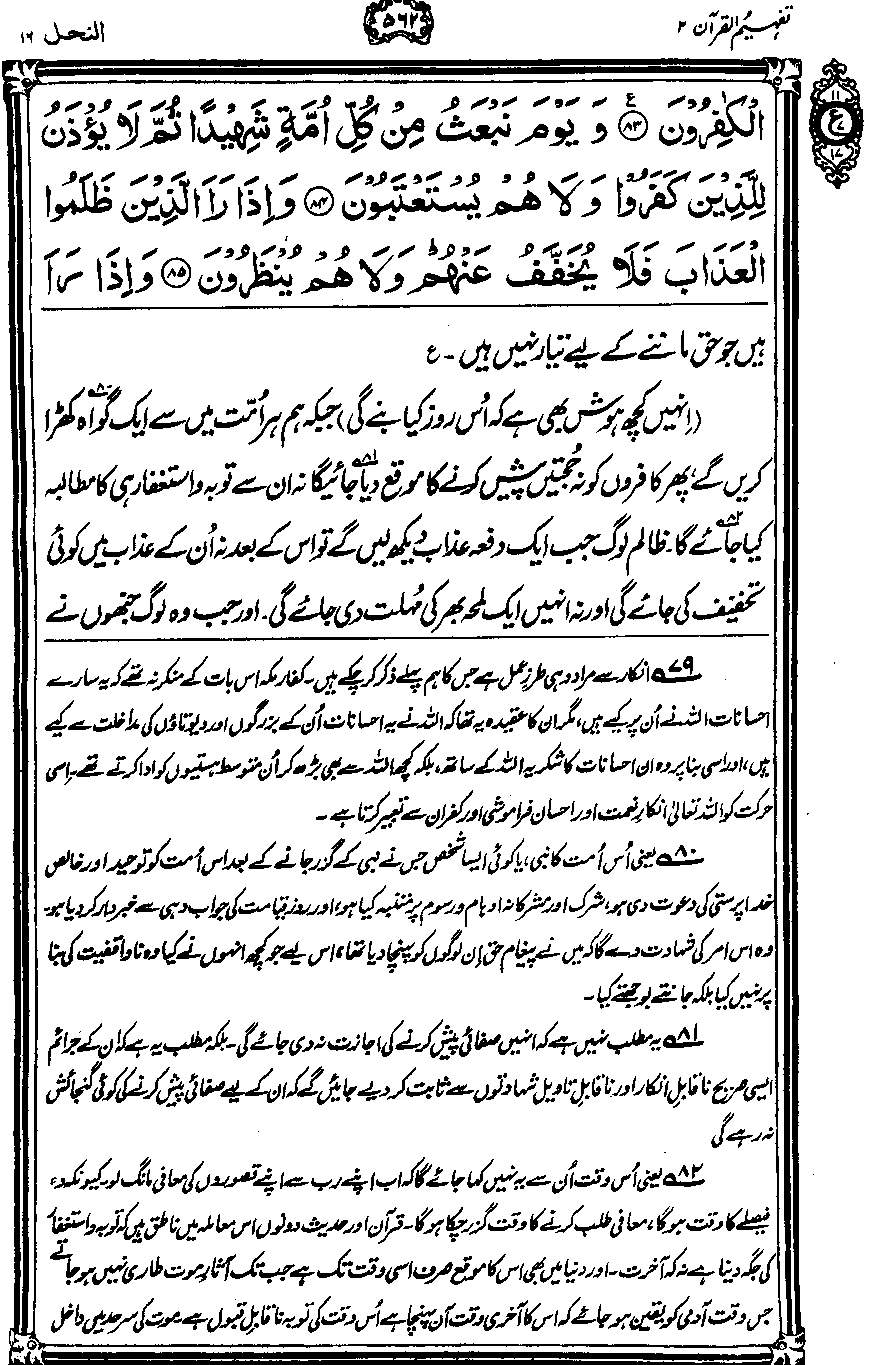 تفہیم القرآن ۲
۵۶۲
النحل ۱۶
الْكٰفِرُوْنَ ﴿۸۳﴾ وَ يَوْمَ نَبْعَثُ مِنْ كُلِّ اُمَّةٍ شَهِيْدًا ثُمَّ لَا يُؤْذَنُ
۱۱
ع
۱۷
لِلَّذِيْنَ كَفَرُوْا وَ لَا هُمْ يُسْتَعْتَبُوْنَ ﴿۸۴﴾ وَ اِذَا رَاَ الَّذِيْنَ ظَلَمُوا
الْعَذَابَ فَلَا يُخَفَّفُ عَنْهُمْ وَ لَا هُمْ يُنْظَرُوْنَ ﴿۸۵﴾ وَ اِذَا رَاَ
ہیں جو حق ماننے کے لیے تیار نہیں ہیں ۔ ع
(اِنہیں کچھ ہوش بھی ہے کہ اُس روز کیا بنے گی) جبکہ ہم ہر اُمّت میں سے ایک گواہ۸۰ کھڑا
کریں گے، پھر کافروں کو نہ حُجتیں پیش کرنے کا موقع دیا۸۱ جائیگا نہ ان سے توبہ و استغفار ہی کا مطالبہ
کیا جائے۸۲ گا۔ ظالم لوگ جب ایک دفعہ عذاب دیکھ لیں گے تو اس کے بعد نہ اُن کے عذاب میں کوئی
تخفیف کی جائے گی اور نہ انہیں ایک لمحہ بھر کی مُہلت دی جائے گی۔ اور جب وہ لوگ جنھوں نے
۷۹ انکار سے مراد وہی طرزِ عمل ہے جس کا ہم پہلے ذکر کر چکے ہیں۔ کفارِ مکہ اس بات کے منکر نہ تھے کہ یہ سارے
احسانات اللہ نے اُن پر کیے ہیں، مگر ان کا عقیدہ یہ تھا کہ اللہ نے یہ احسانات اُن کے بزرگوں اور دیوتاؤں کی مداخلت سے کیے
ہیں، اور اسی بنا پر وہ ان احسانات کا شکریہ اللہ کے ساتھ، بلکہ کچھ اللہ سے بھی بڑھ کر اُن متوسط ہستیوں کو ادا کرتے تھے۔ اِسی
حرکت کو اللہ تعالیٰ انکارِ نعمت اور احسان فراموشی اور کفران سے تعبیر کرتا ہے۔
۸۰ یعنی اُس اُمت کا نبی، یا کوئی ایسا شخص جس نے نبی کے گزر جانے کے بعد اس اُمت کو توحید اور خالص
خدا پرستی کی دعوت دی ہو، شرک اور مشرکانہ اوہام و رسوم پر متنبہ کیا ہو، اور روزِ قیامت کی جواب دہی سے خبردار کر دیا ہو۔
وہ اس امر کی شہادت دے گا کہ میں نے پیغامِ حق اِن لوگوں کو پہنچا دیا تھا، اس لیے جو کچھ انہوں نے کیا وہ ناواقفیت کی بنا
پر نہیں کیا بلکہ جانتے بوجھتے کیا۔
۸۱ یہ مطلب نہیں ہے کہ انہیں صفائی پیش کرنے کی اجازت نہ دی جائے گی۔ بلکہ مطلب یہ ہے کہ ان کے جرائم
ایسی صریح ناقابلِ انکار اور ناقابلِ تاویل شہادتوں سے ثابت کر دیے جائیں گے کہ ان کے لیے صفائی پیش کرنے کی کوئی گنجائش
نہ رہے گی
۸۲ یعنی اُس وقت اُن سے یہ نہیں کہا جائے گا کہ اب اپنے رب سے اپنے قصوروں کی معافی مانگ لو۔ کیونکہ وہ
فیصلے کا وقت ہوگا، معافی طلب کرنے کا وقت گزر چکا ہوگا۔ قرآن اور حدیث دونوں اس معاملہ میں ناطق ہیں کہ توبہ و استغفار
کی جگہ دنیا ہے نہ کہ آخرت۔ اور دنیا میں بھی اس کا موقع صرف اسی وقت تک ہے جب تک آثارِ موت طاری نہیں ہو جاتے
جس وقت آدمی کو یقین ہو جائے کہ اس کا آخری وقت آن پہنچا ہے اُس وقت کی توبہ ناقابلِ قبول ہے۔ موت کی سرحد میں داخل